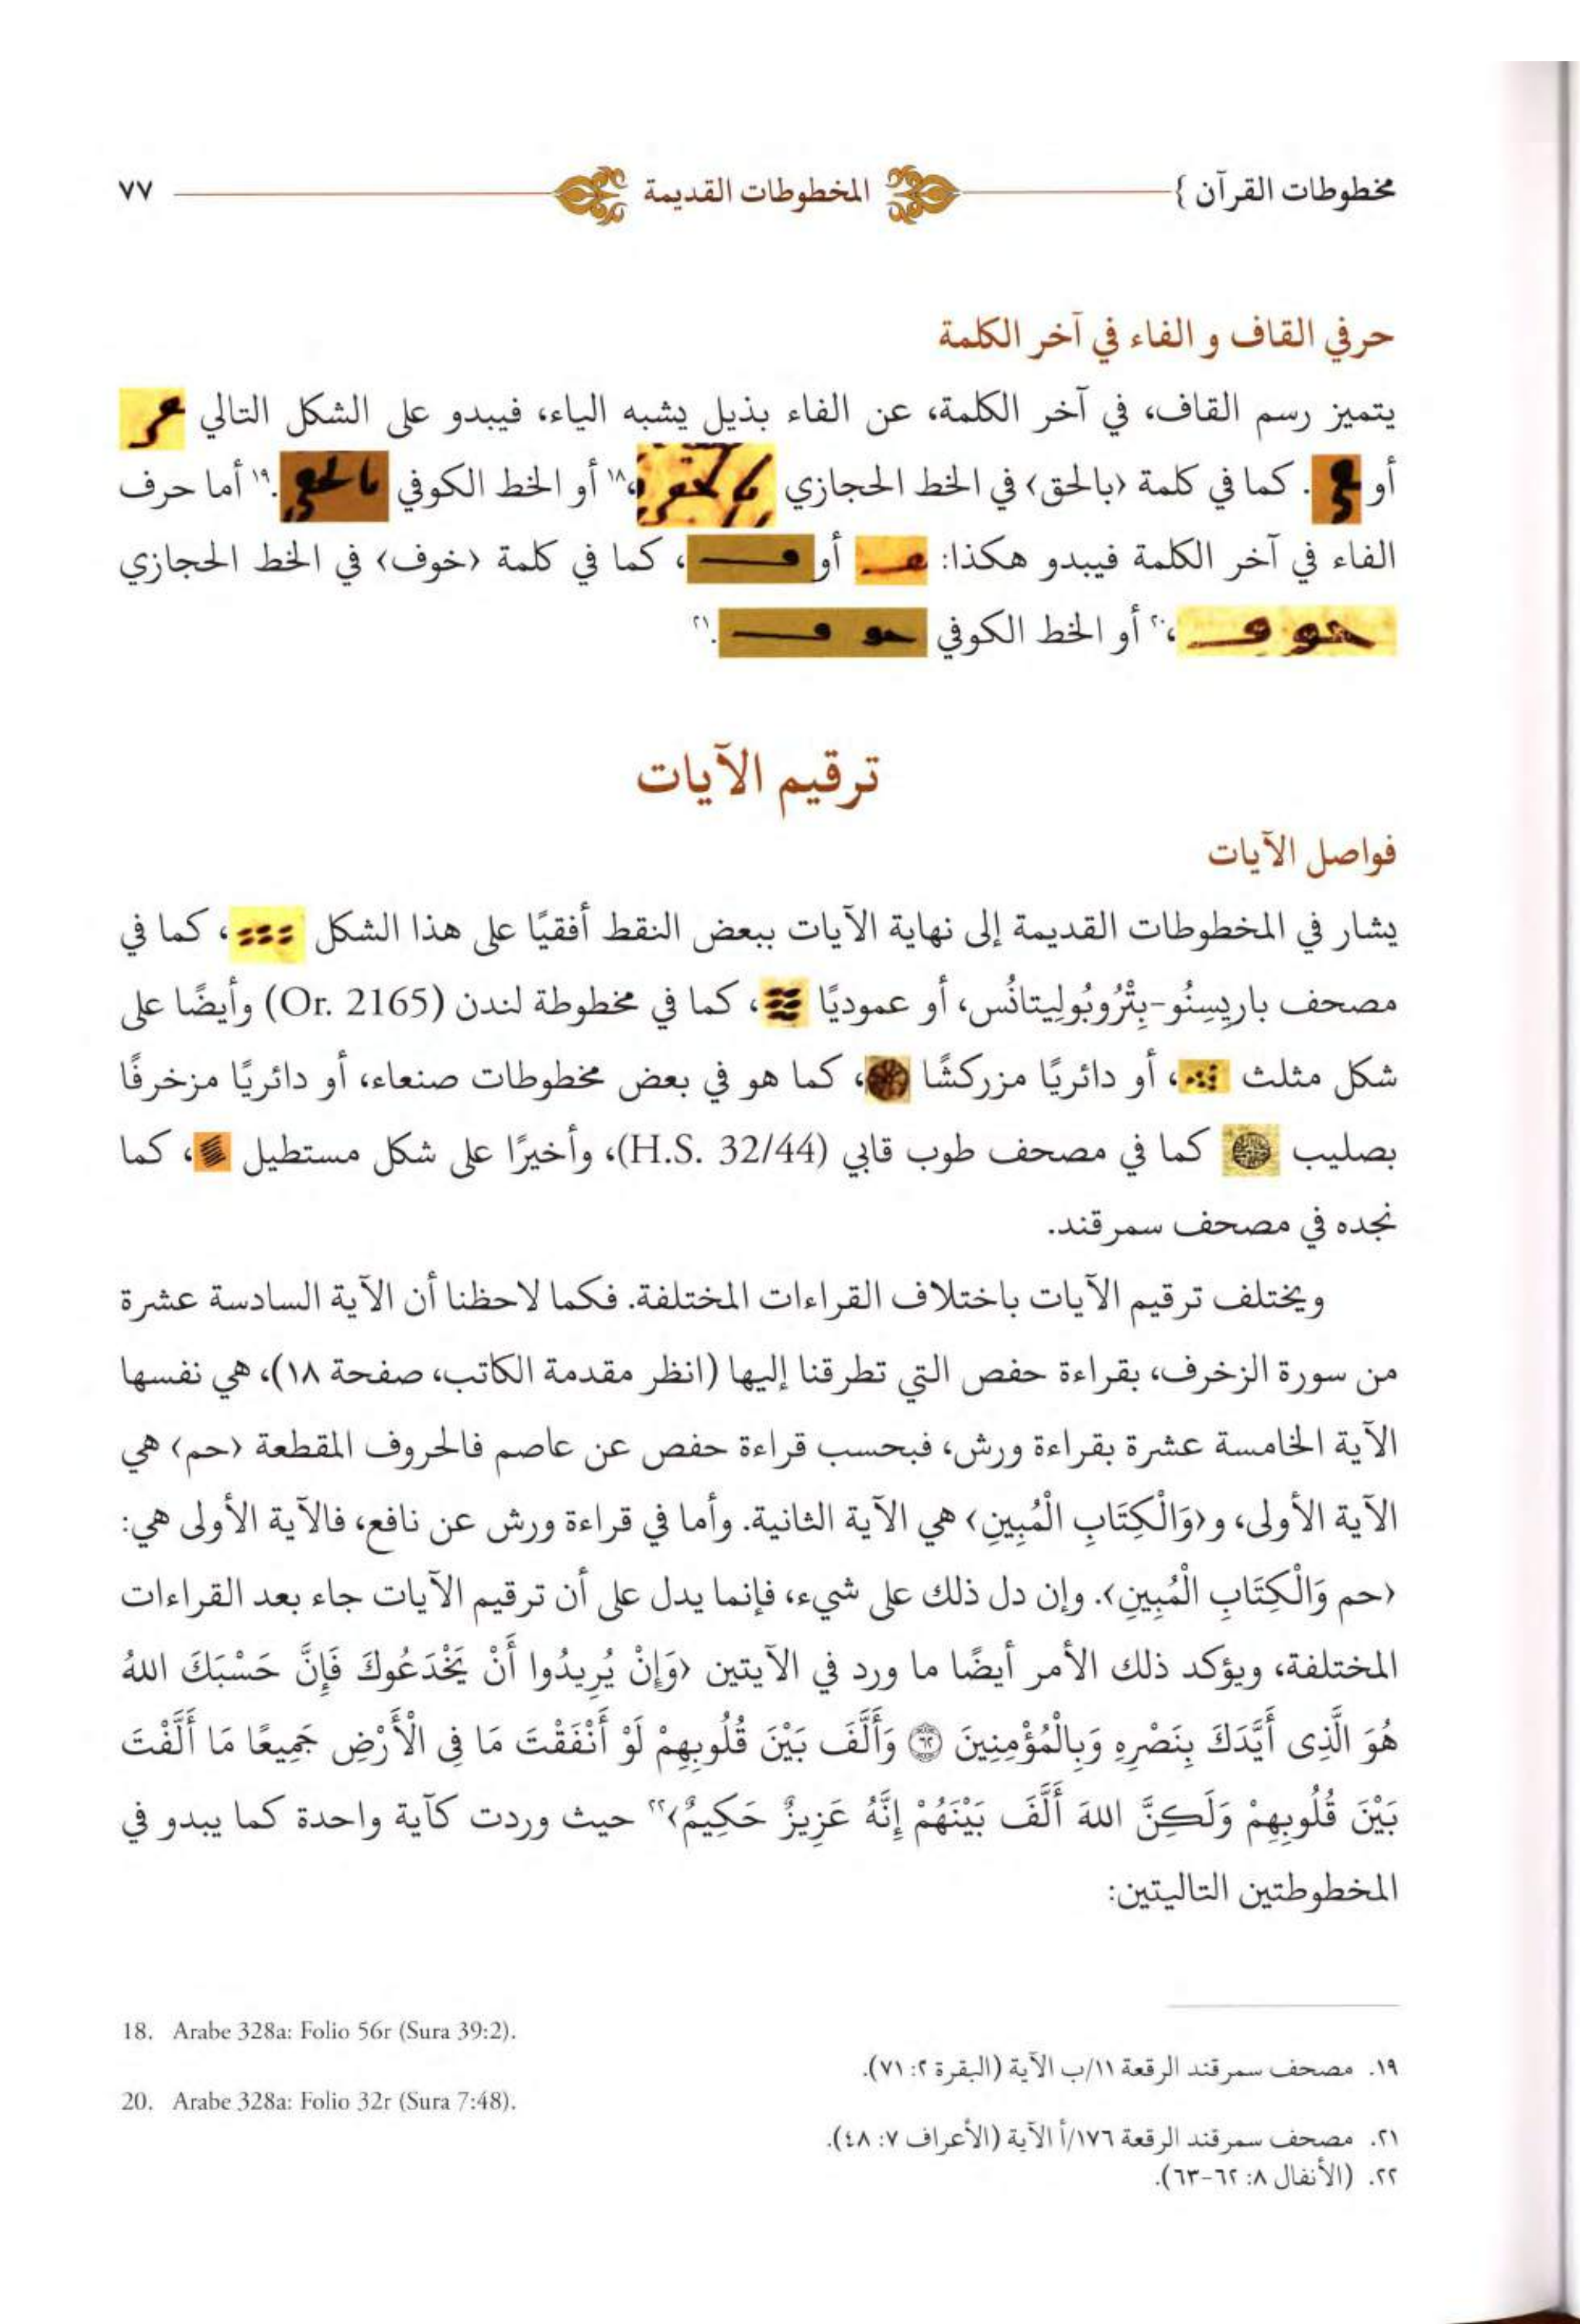 مخطوطات القرآن } المخطوطات القديمة ٧٧
حرفي القاف و الفاء في آخر الكلمة
يتميز رسم القاف، في آخر الكلمة، عن الفاء بذيل يشبه الياء، فيبدو على الشكل التالي
أو . كما في كلمة ‹بالحق› في الخط الحجازي ،١٨ أو الخط الكوفي .١٩ أما حرف
الفاء في آخر الكلمة فيبدو هكذا: أو ، كما في كلمة ‹خوف› في الخط الحجازي
،٢٠ أو الخط الكوفي .٢١
ترقيم الآيات
فواصل الآيات
يشار في المخطوطات القديمة إلى نهاية الآيات ببعض النقط أفقيًا على هذا الشكل ، كما في
مصحف باريسِنُو-بِتْرُوبُولِيتانُس، أو عموديًا ، كما في مخطوطة لندن (Or. 2165) وأيضًا على
شكل مثلث ، أو دائريًا مزركشًا ، كما هو في بعض مخطوطات صنعاء، أو دائريًا مزخرفًا
بصليب كما في مصحف طوب قابي (H.S. 32/44)، وأخيرًا على شكل مستطيل ، كما
نجده في مصحف سمرقند.
ويختلف ترقيم الآيات باختلاف القراءات المختلفة. فكما لاحظنا أن الآية السادسة عشرة
من سورة الزخرف، بقراءة حفص التي تطرقنا إليها (انظر مقدمة الكاتب، صفحة ١٨)، هي نفسها
الآية الخامسة عشرة بقراءة ورش، فبحسب قراءة حفص عن عاصم فالحروف المقطعة ‹حم› هي
الآية الأولى، و‹وَالْكِتَابِ الْمُبِينِ› هي الآية الثانية. وأما في قراءة ورش عن نافع، فالآية الأولى هي:
‹حم وَالْكِتَابِ الْمُبِينِ›. وإن دل ذلك على شيء، فإنما يدل على أن ترقيم الآيات جاء بعد القراءات
المختلفة، ويؤكد ذلك الأمر أيضًا ما ورد في الآيتين ‹وَإِنْ يُرِيدُوا أَنْ يَخْدَعُوكَ فَإِنَّ حَسْبَكَ اللهُ
هُوَ الَّذِى أَيَّدَكَ بِنَصْرِهِ وَبِالْمُؤْمِنِينَ ۝٦٢ وَأَلَّفَ بَيْنَ قُلُوبِهِمْ لَوْ أَنْفَقْتَ مَا فِى الْأَرْضِ جَمِيعًا مَا أَلَّفْتَ
بَيْنَ قُلُوبِهِمْ وَلَكِنَّ اللهَ أَلَّفَ بَيْنَهُمْ إِنَّهُ عَزِيزٌ حَكِيمٌ›٢٢ حيث وردت كآية واحدة كما يبدو في
المخطوطتين التاليتين:
18. Arabe 328a: Folio 56r (Sura 39:2).
١٩. مصحف سمرقند الرقعة ١١/ب الآية (البقرة ٢: ٧١).
20. Arabe 328a: Folio 32r (Sura 7:48).
٢١. مصحف سمرقند الرقعة ١٧٦/أ الآية (الأعراف ٧: ٤٨).
٢٢. (الأنفال ٨: ٦٢-٦٣).